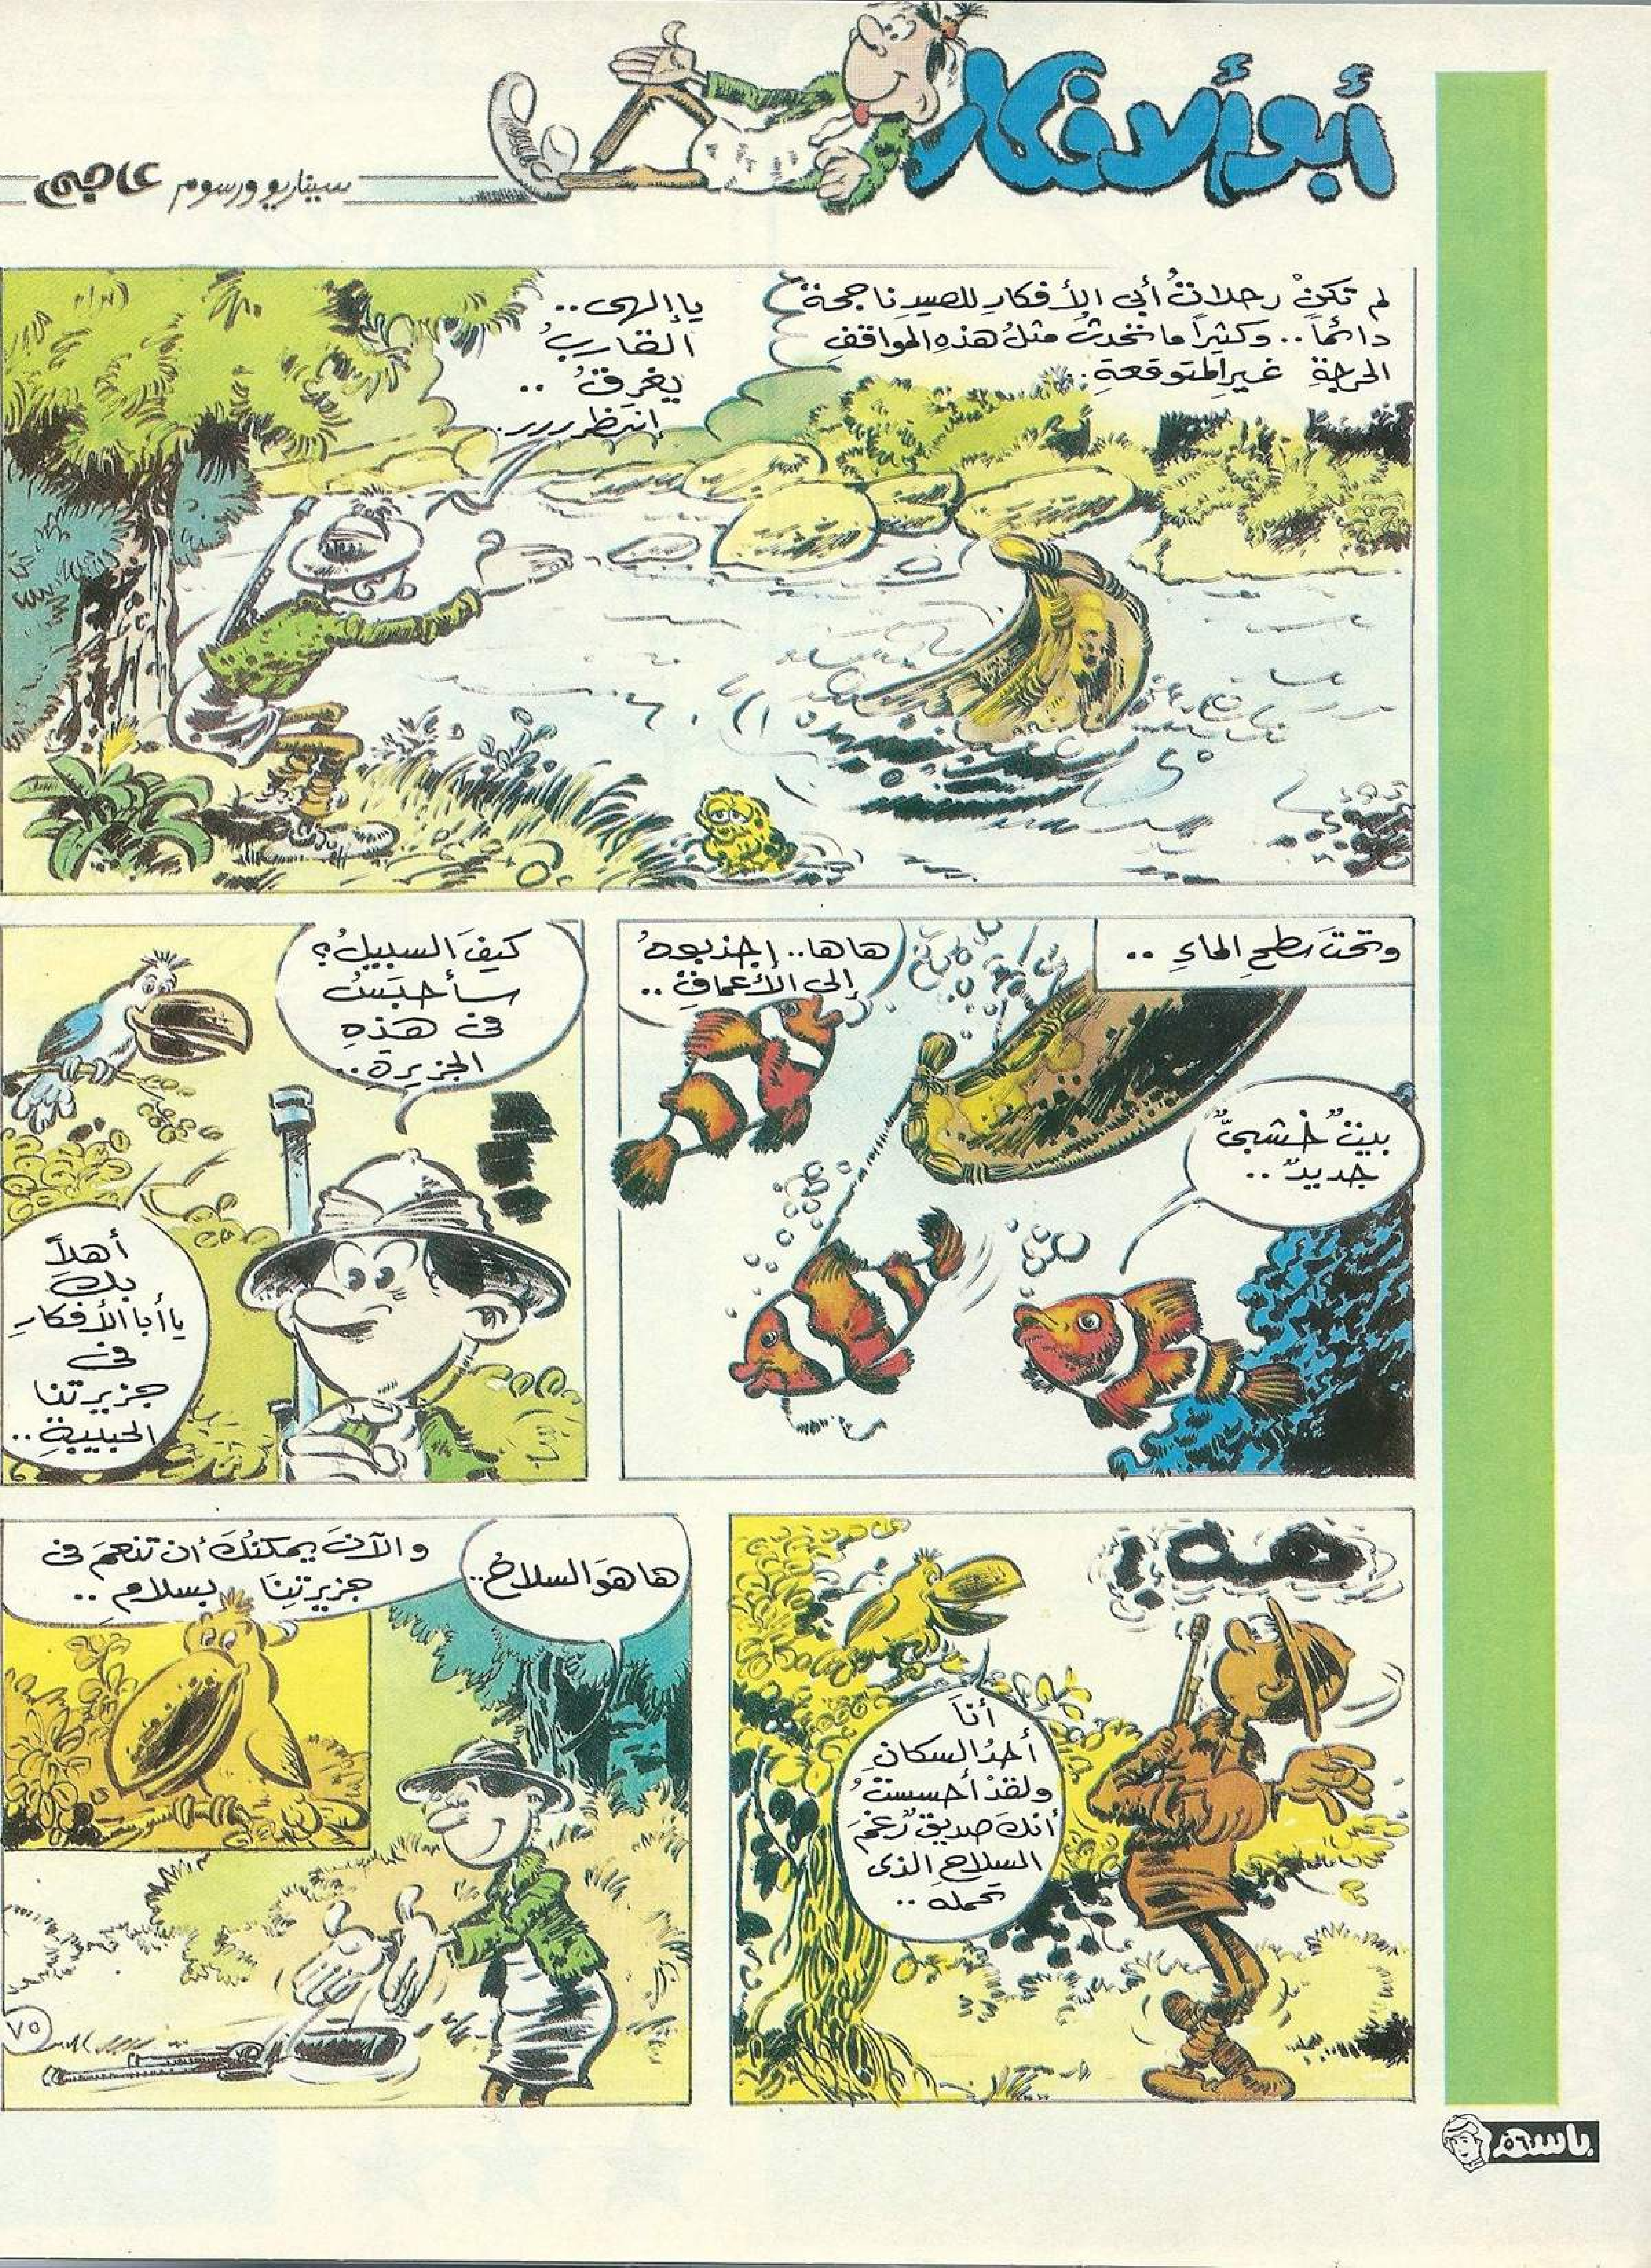 أبو الأفكار
سيناريو ورسوم
لم تكنْ رحلاتُ أبي الأفكارِ للصيدِ ناجحةً
دائماً.. وكثيراً ما تحدثُ مثلُ هذهِ المواقفِ
الحرجةِ غيرِ المتوقعةِ..
يا إلهى..
القاربُ
يغرقُ ..
إنتظرررر..
وتحتَ سطحِ الماءِ ..
بيتٌ خشبىٌّ
جديدٌ ..
هاها.. إجذبوهُ
إلى الأعماقِ ..
كيفَ السبيلُ؟
سأحبَسُ
فى هذهِ
الجزيرةِ..
أهلاً
بكَ
يا أبا الأفكارِ
فى
جزيرتنا
الحبيبةِ..
هه؟!
أنا
أحدُ السكانِ
ولقدْ أحسستُ
أنكَ صديقٌ رغمَ
السلاحِ الذى
تحمله ..
ها هوَ السلاحُ..
والآنَ يمكنكَ أن تنعمَ فى
جزيرتِنا بسلامٍ ..
٧٥
باسم